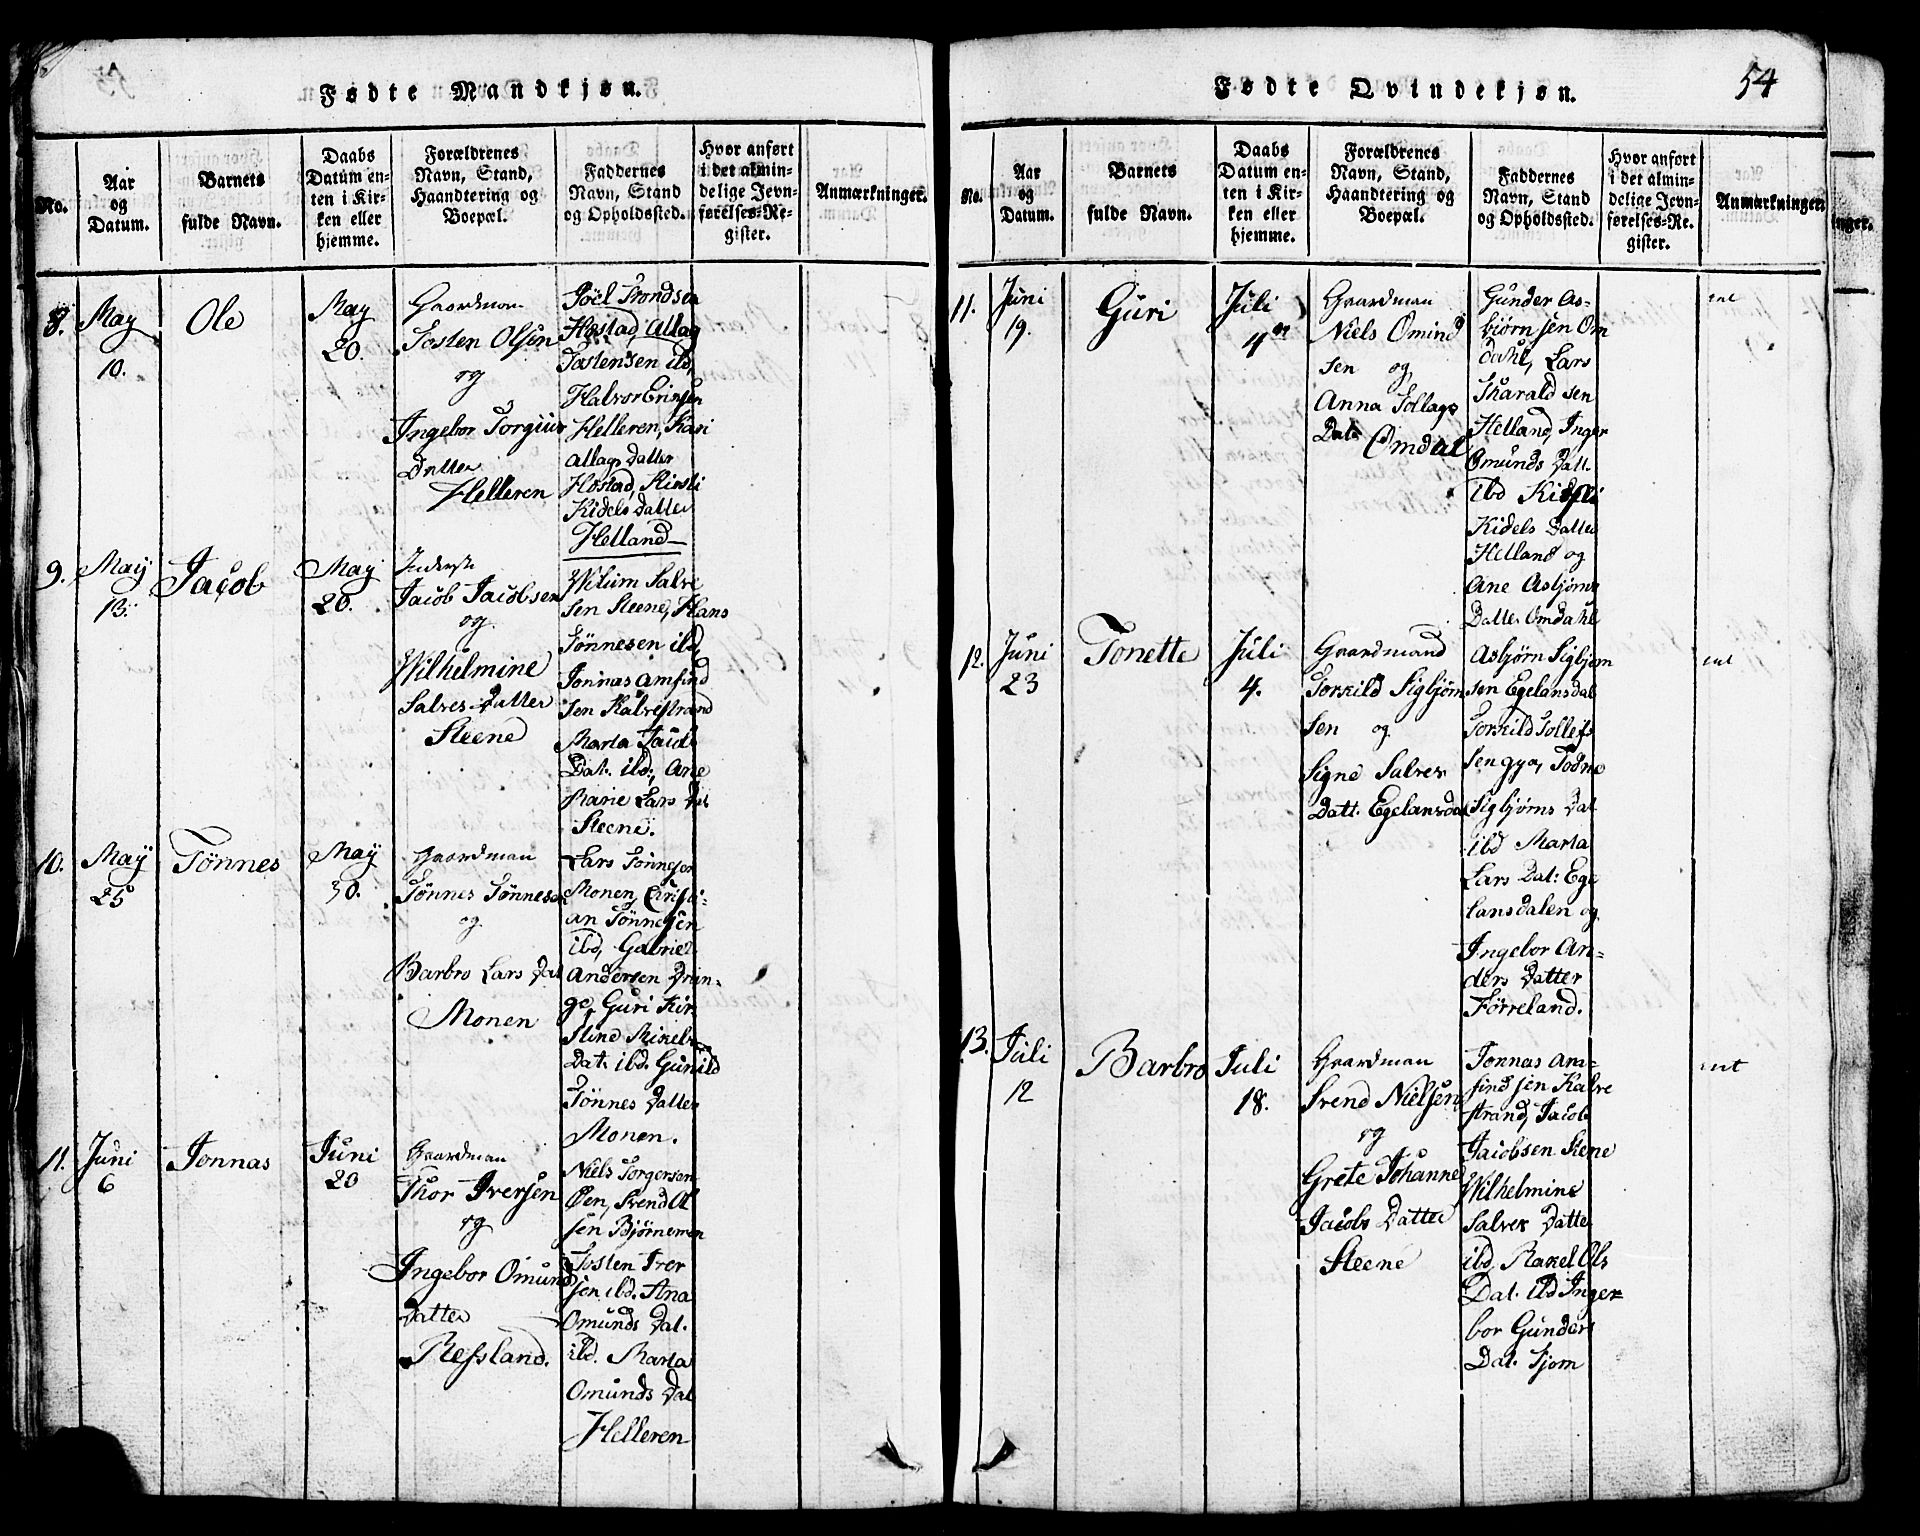 Fødte Mandkjøn.
No.
Aar
og
Datum.
Barnets
fulde Navn.
Daabs
Datum en-
ten i Kir-
ken eller
hjemme.
Forældrenes
Navn, Stand,
Haandtering og
Boepæl.
Faddernes
Navn, Stand
og Opholdssted.
Hvor anført
i det almin-
delige Jevn-
førelses-Re-
gister.
Anmærkninger.
8.
May
10.
Ole
May
20.
Gaardman
Tosten Olsen
og
Ingebor Torgius
Datter
Helleren
Joel Trondsen
Høstad, Allag
Tostensen ibd,
Halvor Erinsen
Helleren, Kari
Allags Datter
Høstad, Kirsti
Kidels Datter
Helland
9.
May
13.
Jacob
May
20.
Inderst
Jacob Jacobsen
og
Wilhelmine
Salves Datter
Steene
Wilum Salve
sen Steene, Hans
Tönnesen ibd,
Jonnas Amfind
sen Kalvestrand
Marta Jacobs
Dat. ibd:, Ane
Marie Lars Dat
Steene.
10.
May
25
Tönnes
May
30.
Gaardman
Tönnes Tönnesen
og
Barbro Lars Dat
Monen
Lars Tönnesen
Monen, Christi-
an Tönnesen
ibd, Gabriel
Andersen Dran-
ge, Guri Kir
stine Mikels
Dat. ibd. Gunild
Tönnes Datter
Monen.
11.
Juni
6
Jonnas
Juni
20
Gaardman
Thor Iversen
og
Ingebor Omunds
Datter
Refsland.
Niels Torgersen
Øen, Svend Al
sen Bjørnemen
Tosten Iver
sen ibd. Ana
Omunds Dat.
ibd. Marta
Omunds Dat
Helleren
54
Fødte Qvindekjøn.
No.
Aar
og
Datum.
Barnets
fulde Navn.
Daabs
Datum en-
ten i Kir-
ken eller
hjemme.
Forældrenes
Navn, Stand,
Haandtering og
Boepæl.
Faddernes
Navn, Stand
og Opholdssted.
Hvor anført
i det almin-
delige Jevn-
førelses-Re-
gister.
Anmærkninger.
nger.
11.
Juni
19.
Guri
Juli
4
Gaardman
Niels Omind
sen og
Anna Tollags
Dat. Omdal
Gunder As-
bjørnsen Om
dahl, Lars
Tharaldsen
Helland, Inger
Omunds Datt.
ibd Kirsti
Kidels Datter
Helland og
Ane Asbjørns
Datter Omdahl
12.
Juni
23
Tonette
Juli
4.
Gaardmand
Torkild Sigbjørn
sen og
Signe Salves
Datt. Egelansdal
Asbjørn Sigbjørn
sen Egelansdal
Torkild Tollefs
sen gya, Todne
Sigbjørns Dat
ibd Marta
Lars Dat: Ege
lansdalen og
Ingebor An-
ders Datter
Förreland.
13.
Juli
12
Barbro
Juli
18.
Gaardman
Svend Nielsen
og
Grete Johanne
Jacobs Datter
Steene
Jonnas Am-
findsen Kalve
strand, Jacob
Jacobsen Stene
Wilhelmine
Salves Datte
ibd, Rakel Ols
Dat. ibd Inger
bor Gunders
Dat. Tjom